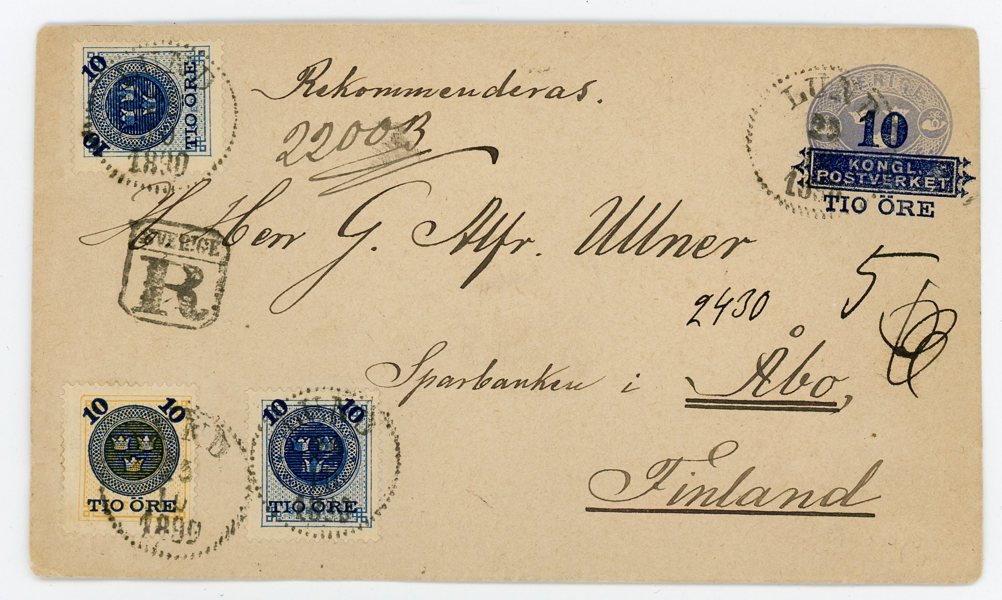 10
10
TIO ÖRE
1890
Rekommenderas.
2200B
LUND
23
10
KONGL.
POSTVERKET
TIO ÖRE
H Herr G. Alfr. Ullner
SVERIGE
R
2430
5
Sparbanken i Åbo,
Finland
10 10
TIO ÖRE
1890
10 10
TIO ÖRE